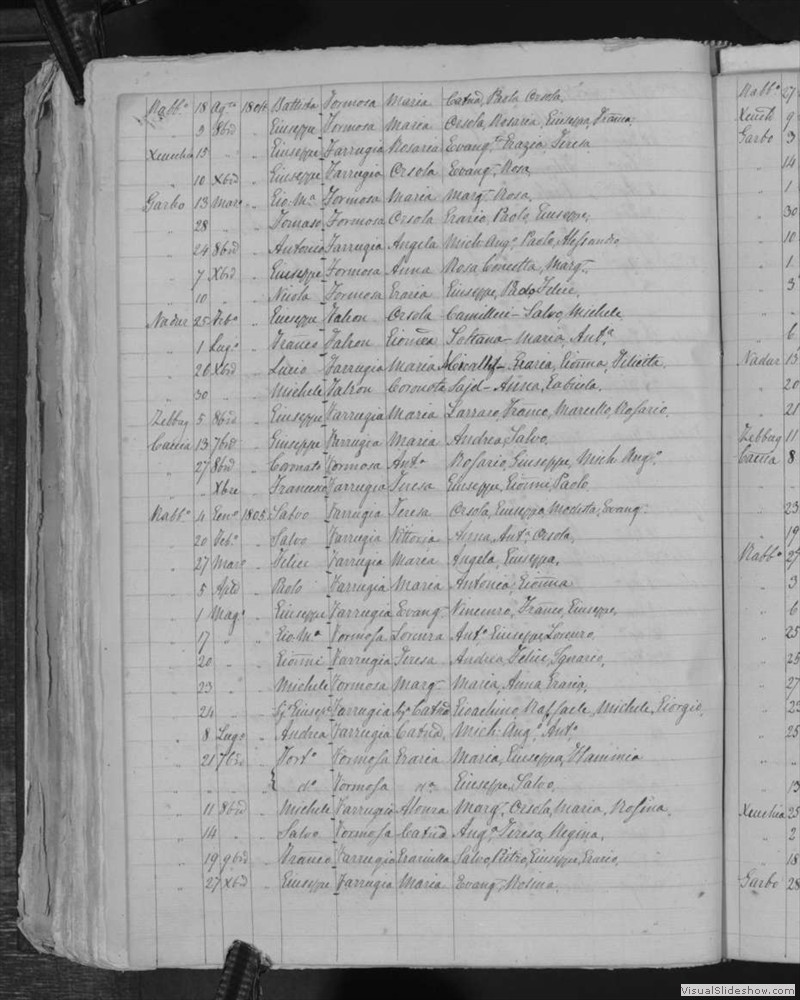 Rabb.o 18 Ag.to 1804 Battista Formosa Maria Catnd, Paola Orsola.
" 9 8bre " Giuseppe Formosa Maria Orsola, Rosaria, Giuseppa, Franca.
Xeuchia 15 " " Giuseppe Farrugia Rosaria Evang.ta Grazia, Teresa
" 10 Xbre " Giuseppe Farrugia Orsola Evang.ta Rosa,
Garbo 13 Marzo " Gio: M.a Formosa Maria Marg.ta Rosa,
" 28 " " Tomaso Formosa Orsola Grazio, Paolo, Giuseppe,
" 24 8bre " Antonio Farrugia Angela Mich: Ang.o, Paolo, Alessandro
" 7 Xbre " Giuseppe Formosa Anna Rosa Concetta, Marg.ta
" 10 " " Nicola Formosa Grazia Giuseppe, Paolo Felice,
Nadur 25 Feb.o " Giuseppe Falzon Orsola Camilleri - Salvo, Michele.
" 1 Lug.o " Franco Falzon Gionna Sultana - Maria, Ant.a
" 20 Xbre " Lucio Farrugia Maria Micallef - Grazia, Gionna, Felicita
" 30 " " Michele Falzon Coronota Said - Anna, Gabriela.
Zebbug 5 8bre " Giuseppe Farrugia Maria Lazzaro, Franco, Marcello, Rosario.
Caccia 13 7bre " Giuseppe Farrugia Maria Andrea, Salvo,
" 27 8bre " Coronato Formosa Ant.a Rosario, Giuseppe, Mich: Ang.o
" Xbre Francesco Farrugia Teresa Giuseppe, Gionni, Paolo.
Rabb.o 4 Gen.o 1805 Salvo Farrugia Teresa Orsola, Giuseppa, Modesta, Evang.
" 20 Feb.o " Salvo Farrugia Vittoria Anna, Ant.a, Orsola,
" 27 Marzo " Felice Farrugia Maria Angela, Giuseppa,
" 5 Aple " Paolo Farrugia Maria Antonia, Gionna
" 1 Mag.o " Giuseppe Farrugia Evang. Vincenzo, Franco, Giuseppe,
" 17 " " Gio M.a Formosa Lorenza Ant.o Giuseppe, Lorenzo,
" 20 " Gionni Farrugia Teresa Andrea, Felice, Ignazio,
" 23 " Michele Formosa Marg. Maria, Anna, Grazia,
" 24 " Sr Giusep. Farrugia Sra Catnd Gioachino, Raffaele, Michele, Giorgio,
" 8 Lug.o " Andrea Farrugia Catnd, Mich: Ang.o, Ant.o
" 21 7bre " Fort.o Formosa Grazia Maria, Giuseppa, Flaminia
" " " d.o Formosa d.a Giuseppe, Salvo,
" 11 8bre " Michele Farrugia Alonza Marg. Orsola, Maria, Rosina,
" 14 " " Salvo Formosa Catnd Ang.a Teresa, Regina,
" 19 9bre " Franco Farrugia Graziulla Salvo, Pietro, Giuseppe, Grazio,
" 27 Xbre " Giuseppe Farrugia Maria Evang. Rosina,
Rabb.o 27
Xeuch 9
Garbo 3
" 14
" 1
" 30
" 10
" 1
" 3
" 6
Nadur 13
" 20
" 21
Zebbug 11
Caccia 8
" 23
" 19
Rabb.o 27
" 3
" 6
" 25
" 25
" 27
" 23
" 25
" 13
Xeuchia 25
" 2
" 18
Garbo 28
VisualSlideshow.com